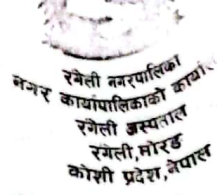 रंगेली नगरपालिका
नगर कार्यापालिकाको कार्या
रंगेली अस्पताल
रंगेली,मोरङ
कोशी प्रदेश,नेपाल